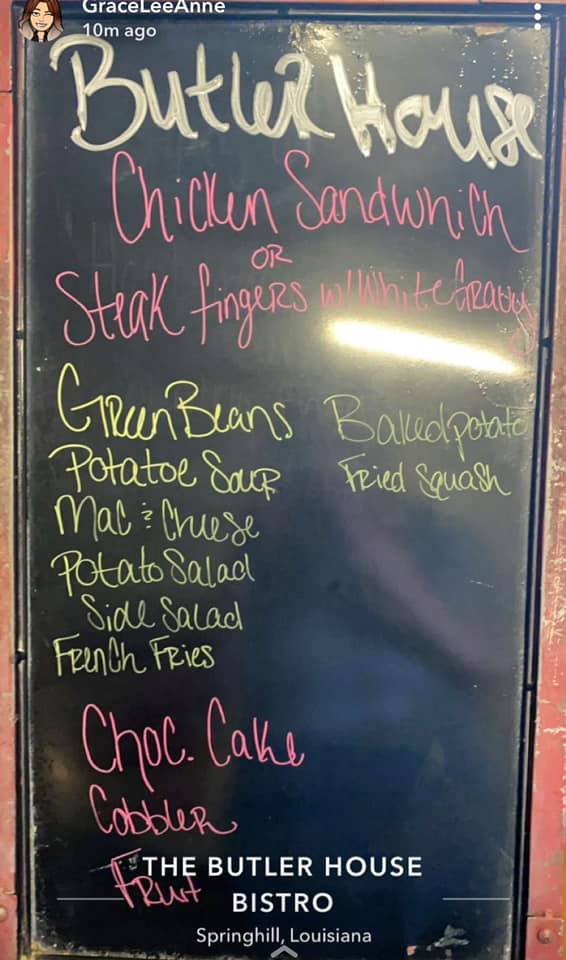 GraceLeeAnne
10m ago
Butler House
Chicken Sandwhich
OR
Steak fingers w/White Gravy
Green Beans
Potatoe Soup
Mac & Cheese
Potato Salad
Side Salad
French Fries
Baked potato
Fried Squash
Choc. Cake
Cobbler
Fruit
THE BUTLER HOUSE
BISTRO
Springhill, Louisiana